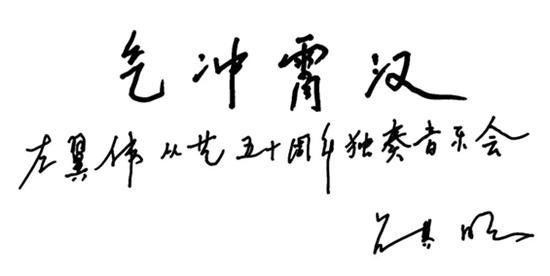 气冲霄汉
左翼伟从艺五十周年独奏音乐会